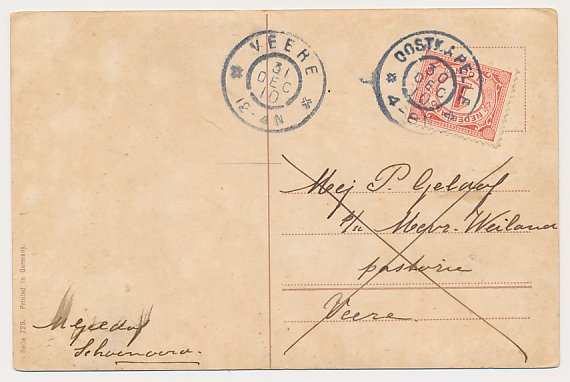 VEERE
31
DEC
10
N
OOSTKAPELLE
30
DEC
10
NEDERL
Mej P. Geldof
p/a Mevr. Weiland
pastorie
Veere.
M Geldof
Schoonoord.
Serie 728. Printed in Germany.